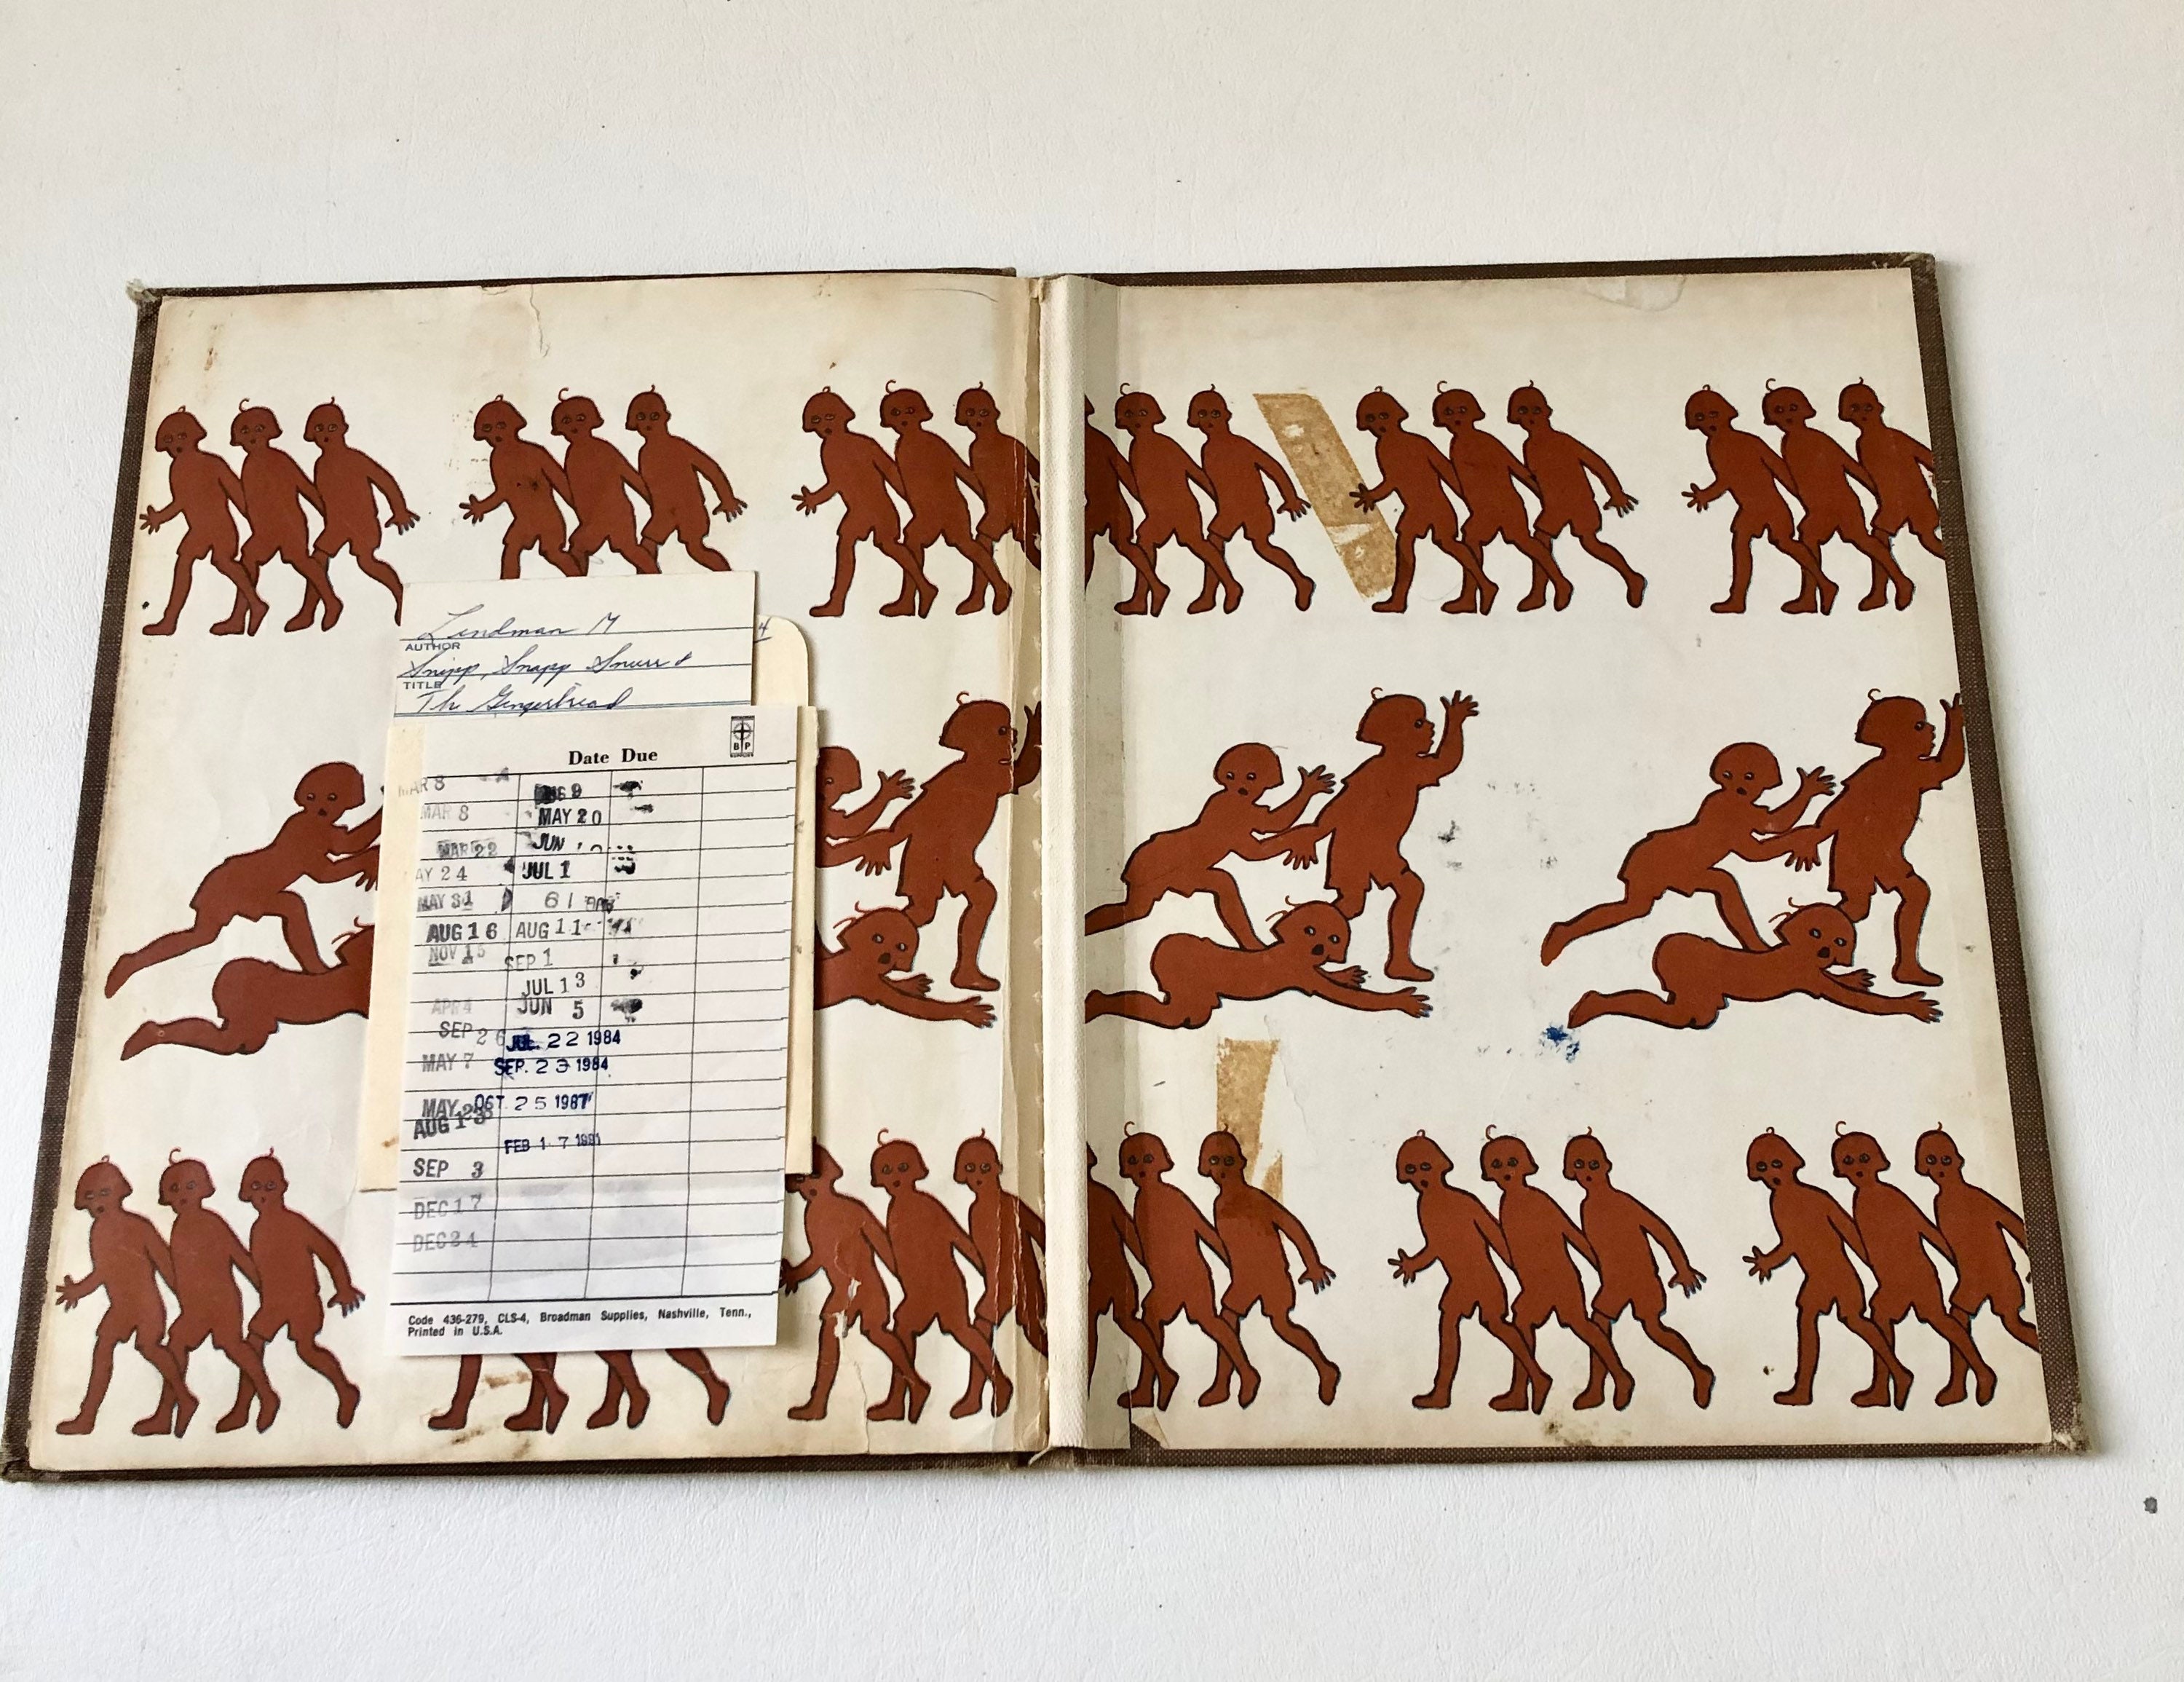 Lindman M
4
AUTHOR
Snipp, Snapp Snurr &
TITLE
Th Gingerbread
B P
Date Due
MAR 8
MAR 8 MAY 20
MAR 22 JUN
AY 24 JUL 1
MAY 31 61
AUG 16 AUG 11
NOV 15 SEP 1
JUL 13
APR 4 JUN 5
SEP 26 JUL. 22 1984
MAY 7 SEP. 23 1984
MAY OCT. 25 1987
AUG 13
FEB 17 1991
SEP 3
DEC 17
DEC 24
Code 436-279, CLS-4, Broadman Supplies, Nashville, Tenn.,
Printed in U.S.A.